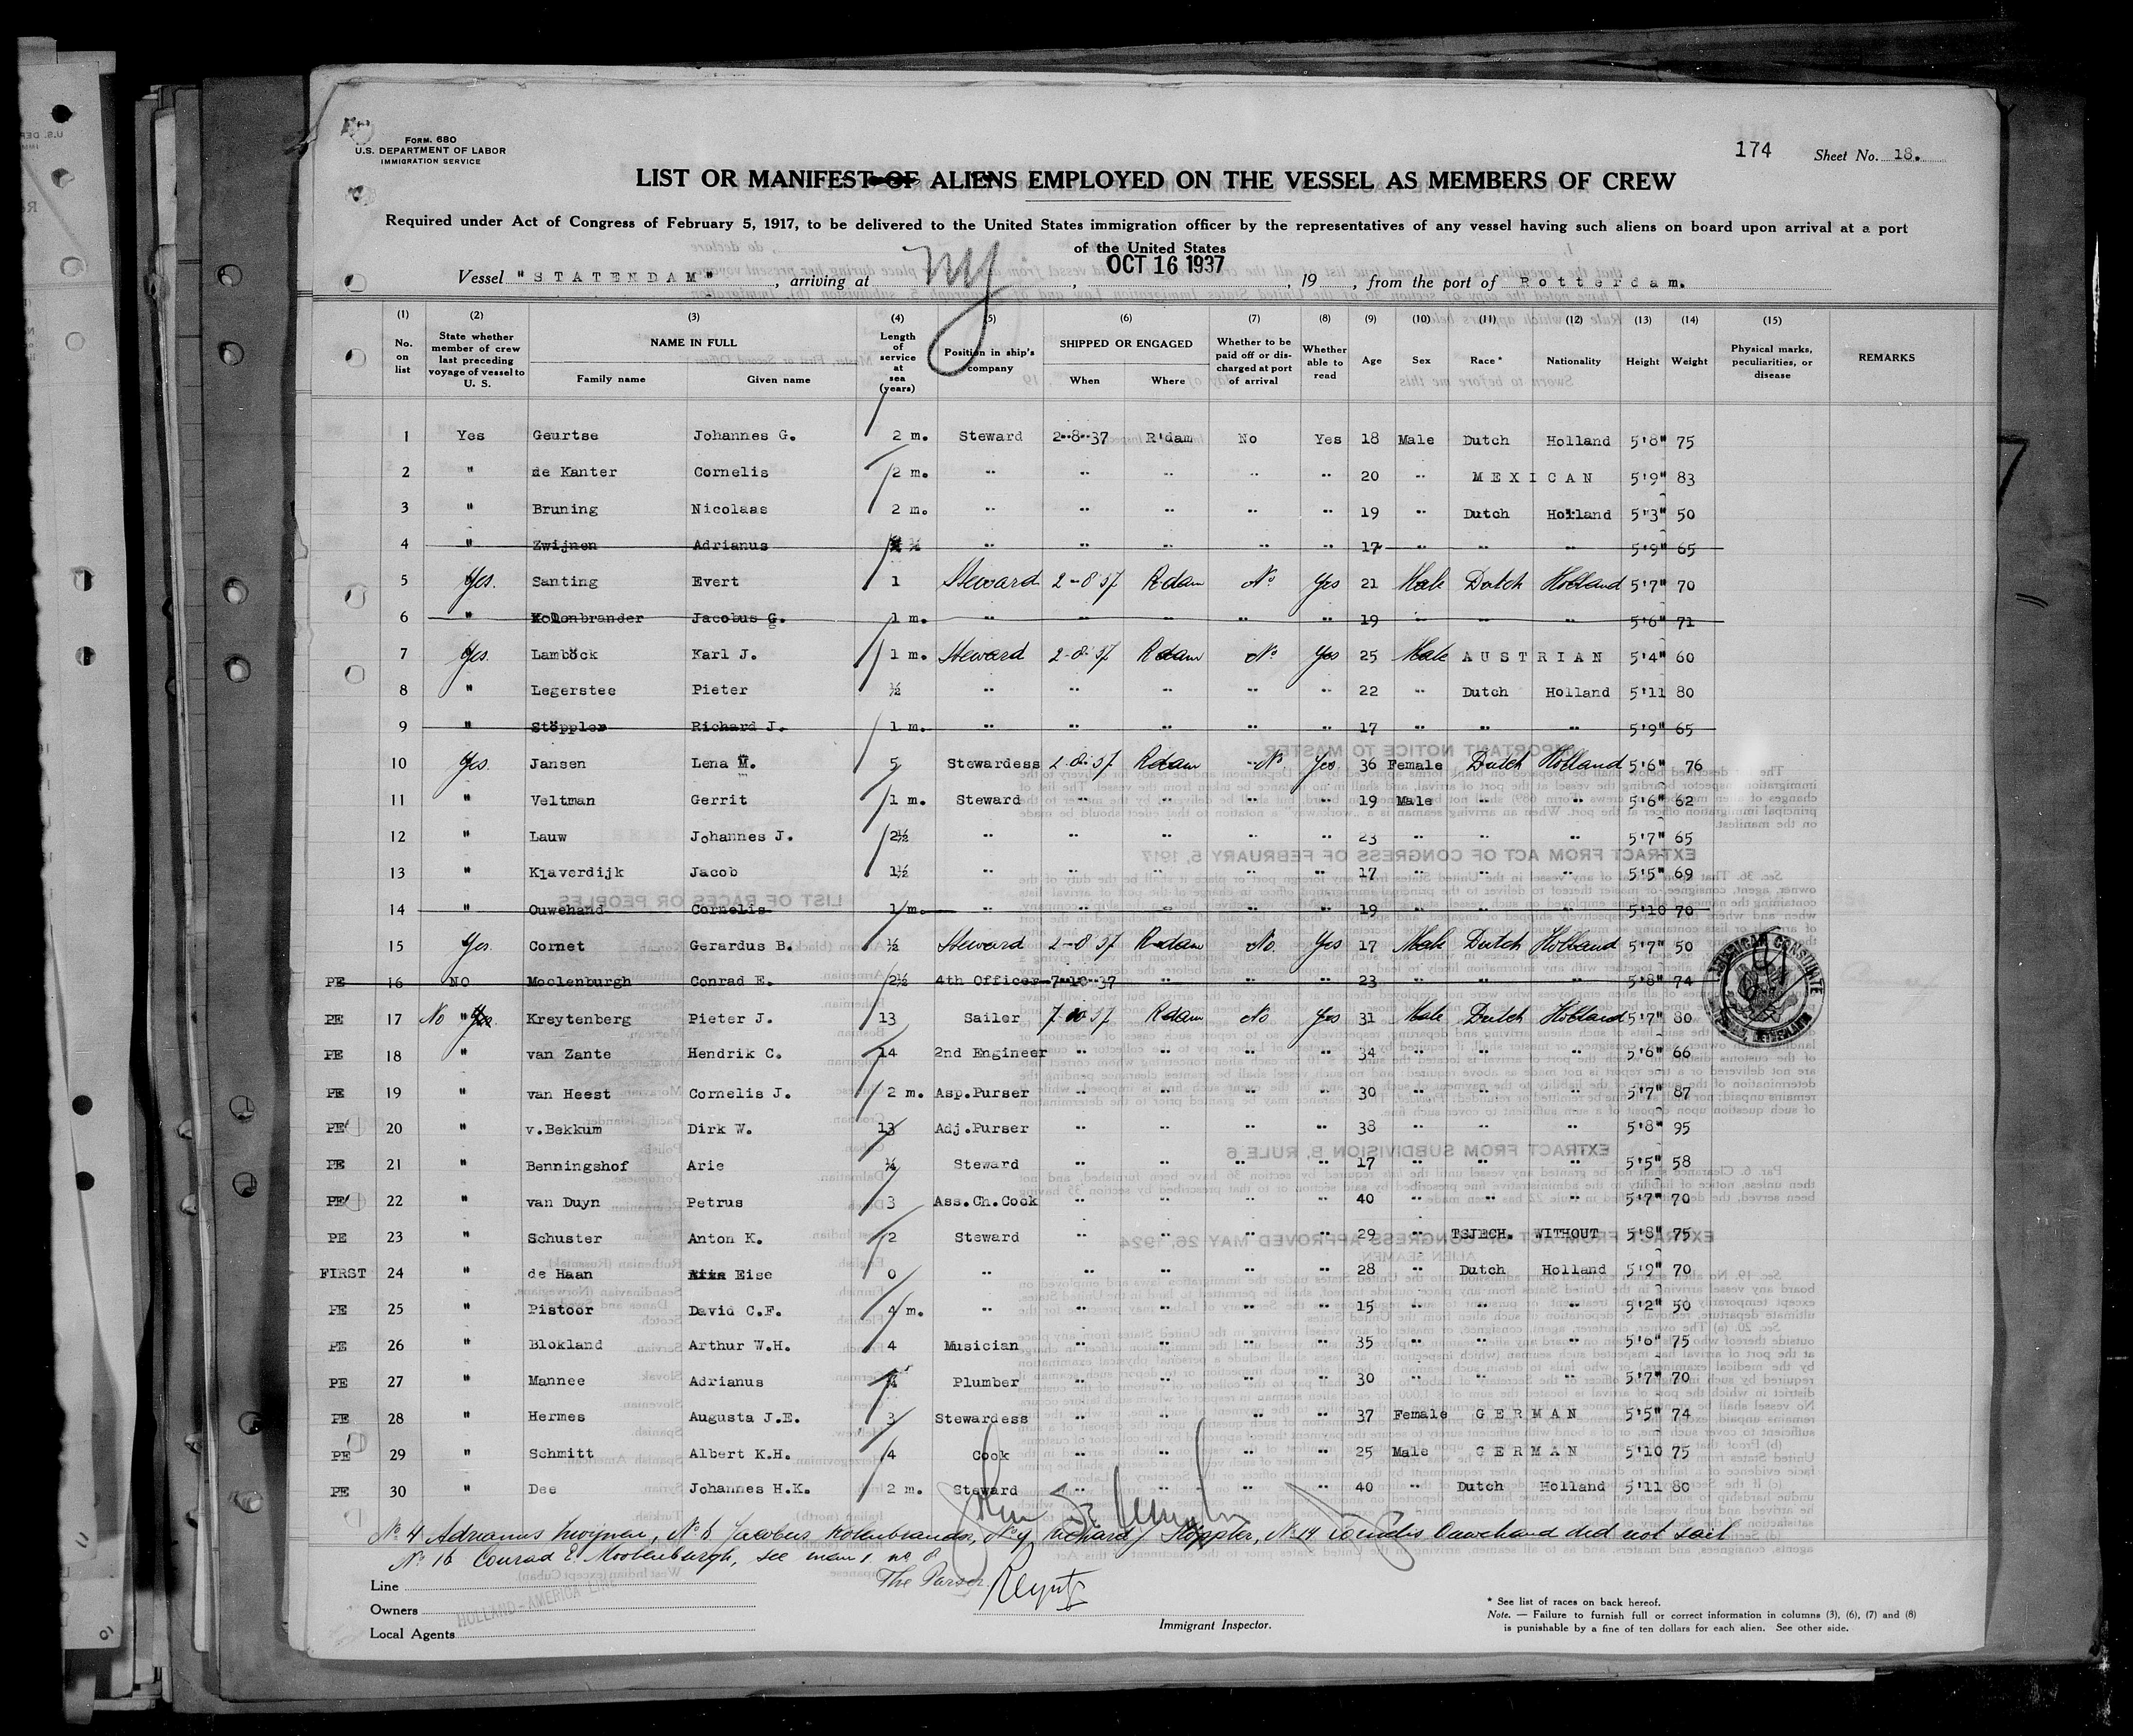 FORM. 680
U.S. DEPARTMENT OF LABOR
IMMIGRATION SERVICE
174 Sheet No. 18.
LIST OR MANIFEST OF ALIENS EMPLOYED ON THE VESSEL AS MEMBERS OF CREW
Required under Act of Congress of February 5, 1917, to be delivered to the United States immigration officer by the representatives of any vessel having such aliens on board upon arrival at a port
of the United States
Vessel "STATENDAM", arriving at NY, OCT 16 1937, 19 , from the port of Rotterdam.
(1) (2) (3) (4) (5) (6) (7) (8) (9) (10) (11) (12) (13) (14) (15)
No. on list | State whether member of crew last preceding voyage of vessel to U. S. | NAME IN FULL Family name Given name | Length of service at sea (years) | Position in ship's company | SHIPPED OR ENGAGED When Where | Whether to be paid off or discharged at port of arrival | Whether able to read | Age | Sex | Race* | Nationality | Height | Weight | Physical marks, peculiarities, or disease | REMARKS
1 Yes Geurtse Johannes G. 2 m. Steward 2-8-37 R'dam No Yes 18 Male Dutch Holland 5'8" 75
2 " de Kanter Cornelis 2 m. " " " " " 20 " MEXICAN 5'9" 83
3 " Bruning Nicolaas 2 m. " " " " " 19 " Dutch Holland 5'3" 50
4 " Zwijnen Adrianus ½ " " " " " 17 " " " 5'9" 65
5 Yes. Santing Evert 1 Steward 2-8 37 Rdam No Yes 21 Male Dutch Holland 5'7" 70
6 " Kolonbrander Jacobus G. 1 m. " " " " " 19 " " " 5'6" 71
7 Yes. Lamböck Karl J. 1 m. Steward 2-8-37 Rdam No Yes 25 Male AUSTRIAN 5'4" 60
8 " Legerstee Pieter ½ " " " " " 22 " Dutch Holland 5'11 80
9 " Stöppler Richard J. 1 m. " " " " " 17 " " " 5'9" 65
10 Yes. Jansen Lena M. 5 Stewardess 2-8-37 Rdam No Yes 36 Female Dutch Holland 5'6" 76
11 " Veltman Gerrit 1 m. Steward " " " " 19 Male " " 5'6" 62
12 " Lauw Johannes J. 2½ " " " " " 23 " " " 5'7" 65
13 " Klaverdijk Jacob 1½ " " " " " 17 " " " 5'5" 69
14 " Ouwehand Cornelis 1 m. " " " " " 19 " " " 5'10 70
15 Yes Cornet Gerardus B. ½ Steward 2-8 37 Rdam No Yes 17 Male Dutch Holland 5'7" 50
PE 16 NO Moolenburgh Conrad E. 2½ 4th Officer 7-10-37 " " " 23 " " " 5'8" 74
PE 17 No " Yes. Kreytenberg Pieter J. 13 Sailer 7 10 37 Rdam No Yes 31 Male Dutch Holland 5'7" 80
PE 18 " van Zante Hendrik C. 14 2nd Engineer " " " " 34 " " " 5'6" 66
PE 19 " van Heest Cornelis J. 2 m. Asp.Purser " " " " 30 " " " 5'7" 87
PE 20 " v.Bekkum Dirk W. 13 Adj.Purser " " " " 38 " " " 5'8" 95
PE 21 " Benningshof Arie ¼ Steward " " " " 17 " " " 5'5" 58
PE 22 " van Duyn Petrus 3 Ass.Ch.Cook " " " " 40 " " " 5'7" 70
PE 23 " Schuster Anton K. 2 Steward " " " " 29 " TSJECH. WITHOUT 5'8" 75
FIRST 24 " de Haan Eise 0 " " " " " 28 " Dutch Holland 5'9" 70
PE 25 " Pistoor David C.F. 4 m. " " " " " 15 " " " 5'2" 50
PE 26 " Blokland Arthur W.H. 4 Musician " " " " 35 " " " 5'6" 75
PE 27 " Mannee Adrianus Plumber " " " " 30 " " " 5'7" 70
PE 28 " Hermes Augusta J.E. 3 Stewardess " " " " 37 Female GERMAN 5'5" 74
PE 29 " Schmitt Albert K.H. 4 Cook " " " " 25 Male GERMAN 5'10 75
PE 30 " Dee Johannes H.K. 2 m. Steward " " " " 40 " Dutch Holland 5'11 80
AMERICAN CONSULATE
No 4 Adrianus Zwijnen, No 6 Jacobus Kolenbrander, No 9 Richard J Stöppler, No 14 Cornelis Ouwehand did not sail
No 16 Conrad E. Moolenburgh, see
The Purser
Line
Owners HOLLAND-AMERICA LINE
Local Agents
Immigrant Inspector.
* See list of races on back hereof.
Note. — Failure to furnish full or correct information in columns (3), (6), (7) and (8)
is punishable by a fine of ten dollars for each alien. See other side.